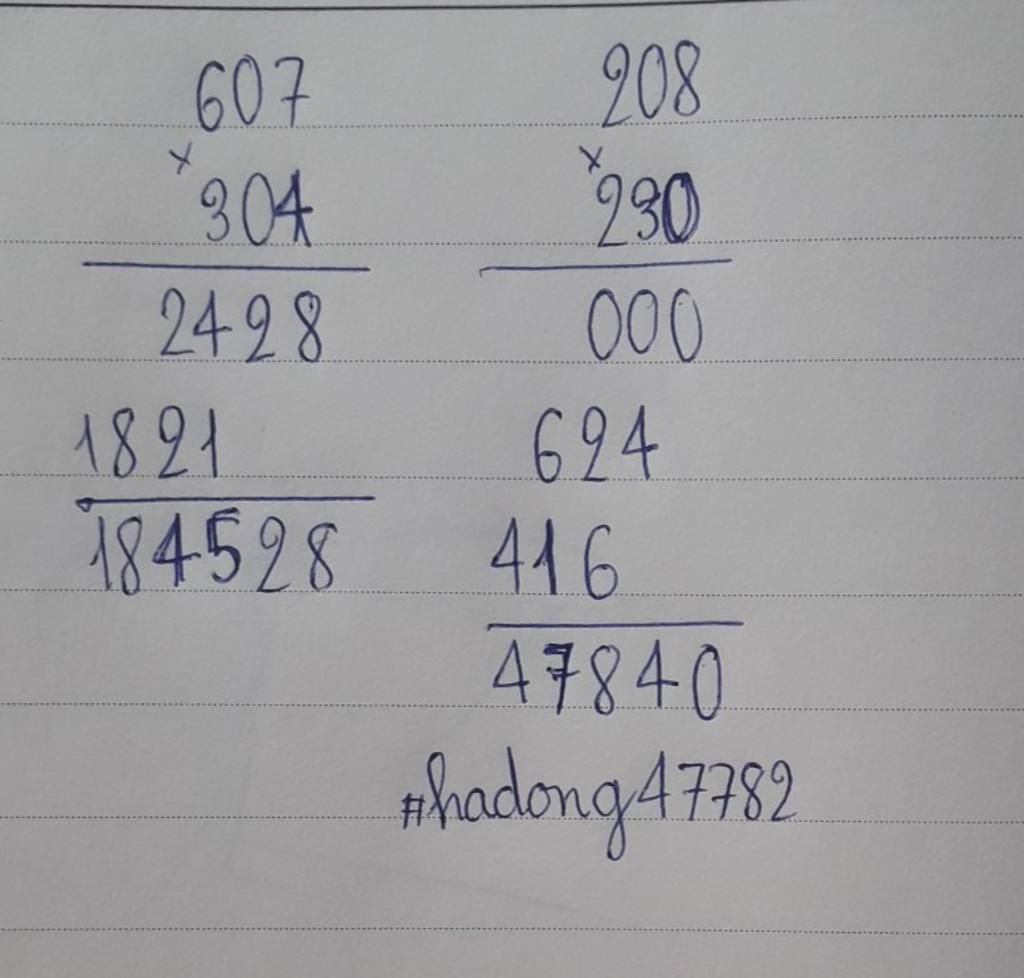 607
×
304
2428
1821
184528
208
×
230
000
624
416
47840
#hadong47782